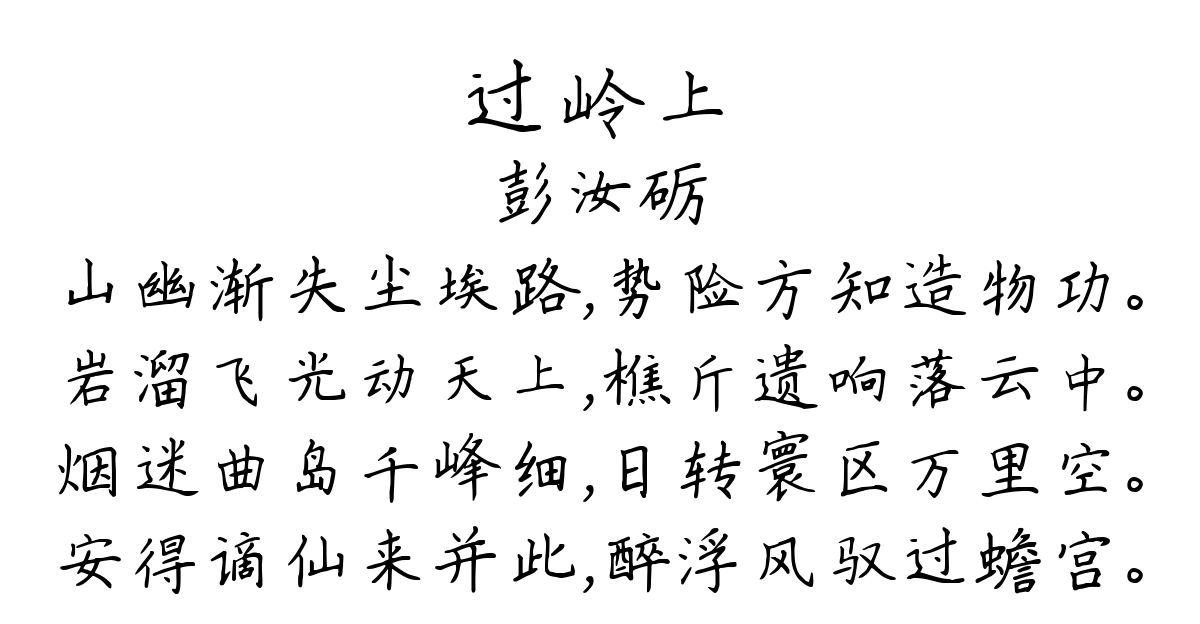 过岭上
彭汝砺
山幽渐失尘埃路,势险方知造物功。
岩溜飞光动天上,樵斤遗响落云中。
烟迷曲岛千峰细,日转寰区万里空。
安得谪仙来并此,醉浮风驭过蟾宫。